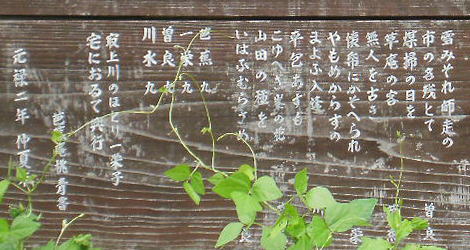 雪みぞれ師走の
市の名残とて 曽良
煤掃の日を
草庵の客
無人を古き
懐帋にかぞへられ
やもめがらすの
まよふ入逢
平包あすも
こゆべき峯の花
山田の種を
いはふむらさめ
芭蕉 九
一栄 九
曽良 九
川水 九
最上川のほとり一栄子
宅におゐて興行
芭蕉桃青書
元禄二年 仲夏